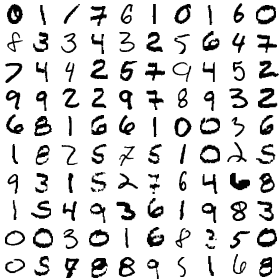 0 1 / 7 6 1 0 1 6 0
8 3 3 4 3 2 5 6 4 7
7 4 4 2 5 7 9 4 5 2
9 9 2 2 9 7 8 9 3 2
6 8 1 6 6 1 0 0 3 6
1 8 2 5 7 5 1 0 2 5
9 3 1 5 2 7 6 4 6 8
1 5 4 9 3 6 1 9 8 3
0 0 3 0 1 6 8 5 0
0 5 7 8 8 9 5 1 6 8